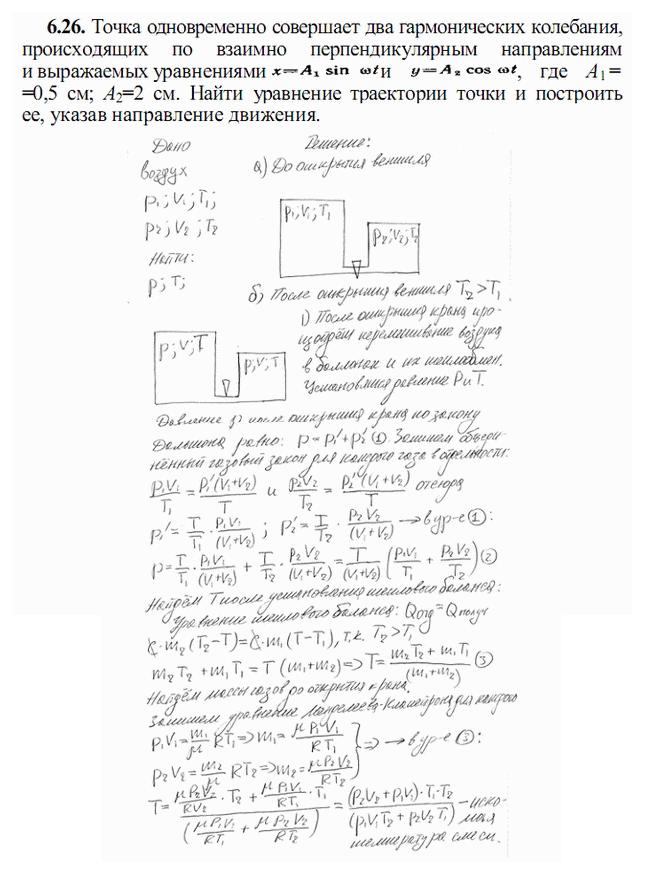 6.26. Точка одновременно совершает два гармонических колебания,
происходящих по взаимно перпендикулярным направлениям
и выражаемых уравнениями x=A₁ sin ωt и y=A₂ cos ωt, где A₁=
=0,5 см; A₂=2 см. Найти уравнение траектории точки и построить
ее, указав направление движения.
Дано Решение:
воздух а) До открытия вентиля
p₁; V₁; T₁; p₁; V₁; T₁
p₂; V₂; T₂ p₂; V₂; T₂
Найти:
p; T;
б) После открытия вентиля T₂>T₁.
1) После открытия крана про-
изойдёт перемешивание воздуха
p; V; T p; V; T в баллонах и их теплообмен.
Установятся давление P и T.
Давление p после открытия крана по закону
Дальтона равно: p=p₁'+p₂' (1). Запишем объеди-
нённый газовый закон для каждого газа в отдельности:
p₁V₁/T₁ = p₁'(V₁+V₂)/T и p₂V₂/T₂ = p₂'(V₁+V₂)/T отсюда
p₁' = T/T₁ · p₁V₁/(V₁+V₂); p₂' = T/T₂ · p₂V₂/(V₁+V₂) → в ур-е (1):
p = T/T₁ · p₁V₁/(V₁+V₂) + T/T₂ · p₂V₂/(V₁+V₂) = T/(V₁+V₂) (p₁V₁/T₁ + p₂V₂/T₂) (2)
Найдём T после установления теплового баланса:
Уравнение теплового баланса: Qотд = Qполуч
C·m₂(T₂-T)=C·m₁(T-T₁), т.к. T₂>T₁
m₂T₂+m₁T₁=T(m₁+m₂)=>T= (m₂T₂+m₁T₁)/(m₁+m₂) (3)
Найдём массы газов до открытия крана.
Запишем уравнение Менделеева-Клапейрона для каждого
p₁V₁= m₁/μ RT₁=>m₁= μp₁V₁/RT₁
} => → в ур-е (3):
p₂V₂= m₂/μ RT₂=>m₂= μp₂V₂/RT₂
T= (μp₂V₂/RV₂ · T₂ + μp₁V₁/RT₁ · T₁)/(μp₁V₁/RT₁ + μp₂V₂/RT₂) = (p₂V₂+p₁V₁)·T₁·T₂/(p₁V₁T₂+p₂V₂T₁) – иско-
мая
температура смеси.